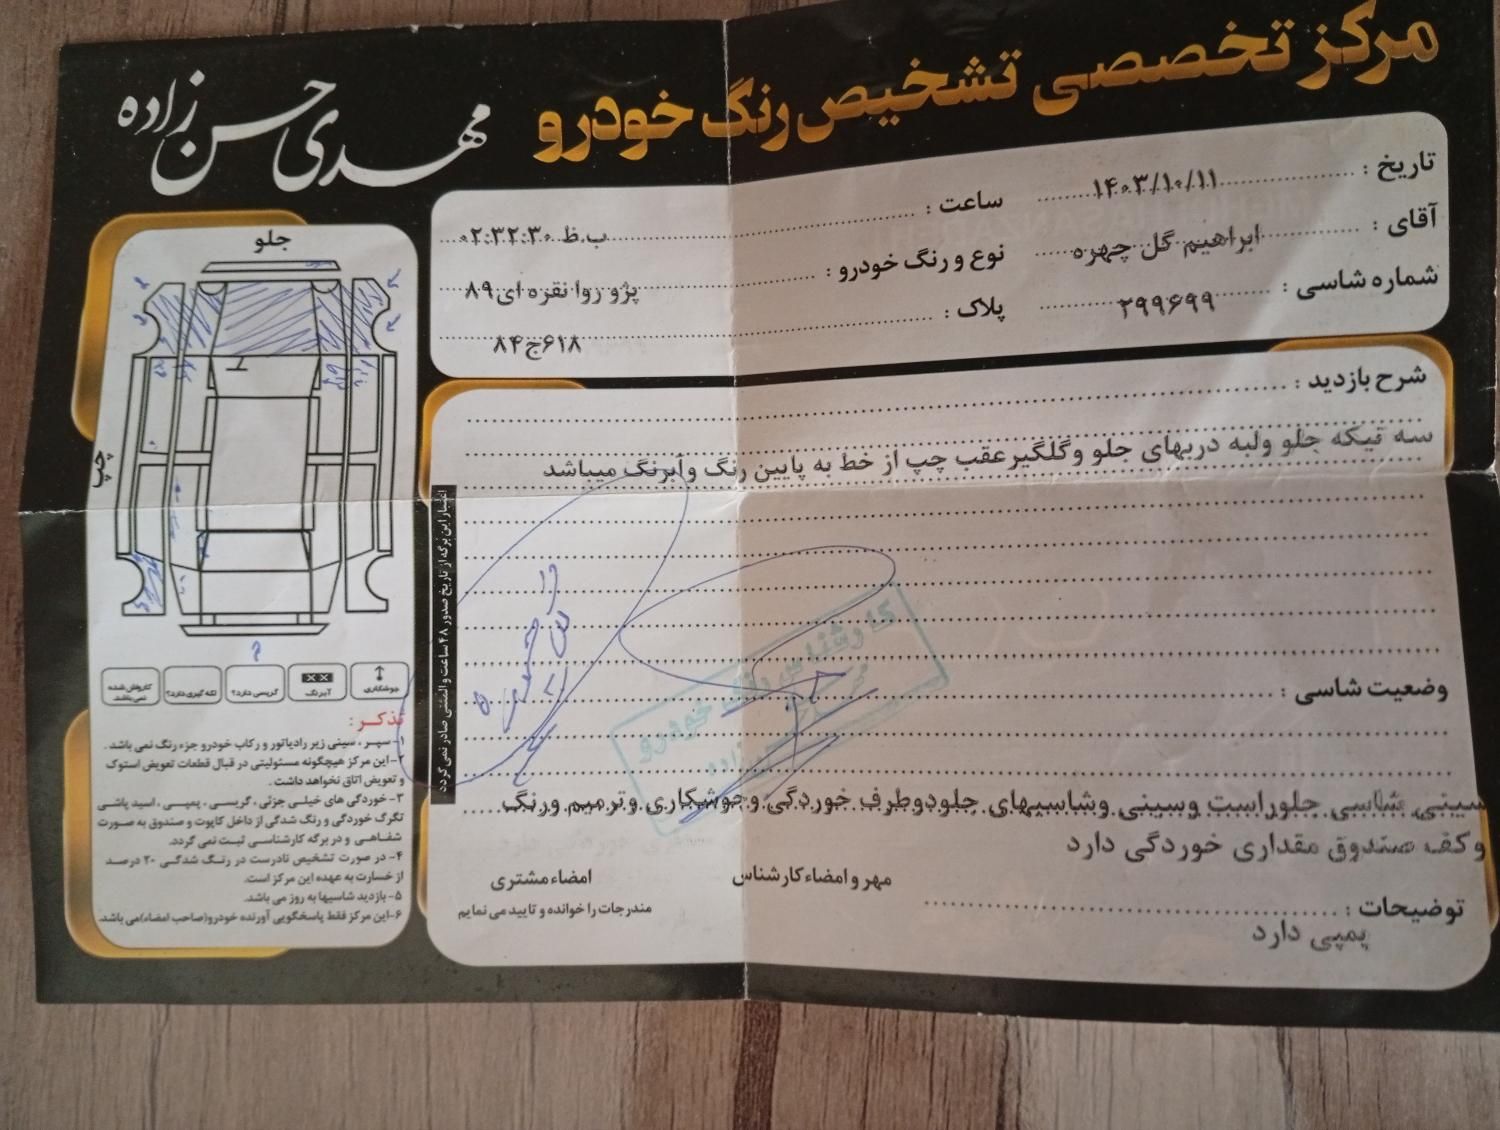 مرکز تخصصی تشخیص رنگ خودرو
مهدی حسن زاده
تاریخ : ۱۴۰۳/۱۰/۱۱
ساعت : ۰۲:۳۲:۳۰ ب.ظ
آقای : ابراهیم گل چهره
نوع و رنگ خودرو : پژو روا نقره ای ۸۹
شماره شاسی : ۲۹۹۶۹۹
پلاک : ۶۱۸ج۸۴
شرح بازدید :
سه تیکه جلو ولبه دربهای جلو وگلگیر عقب چپ از خط به پایین رنگ وآبرنگ میباشد
وضعیت شاسی :
سینی شاسی جلوراست وسینی وشاسیهای جلودوطرف خوردگی وجوشکاری وترمیم ورنگ
وکف صندوق مقداری خوردگی دارد
مهر و امضاء کارشناس
امضاء مشتری
مندرجات را خوانده و تایید می نمایم
توضیحات :
پمپی دارد
اعتبار این برگه از تاریخ صدور ۴۸ ساعت و المثنی صادر نمی گردد
جلو
چپ
جوشکاری
آبرنگ
گریسی دارد؟
لکه گیری دارد؟
کارواش شده نمی باشد
تذکر :
۱- سپر ، سینی زیر رادیاتور و رکاب خودرو جزء رنگ نمی باشد .
۲- این مرکز هیچگونه مسئولیتی در قبال قطعات تعویض استوک
و تعویض اتاق نخواهد داشت .
۳- خوردگی های خیلی جزئی ، گریسی ، پمپی ، اسید پاشی
تگرگ خوردگی و رنگ شدگی از داخل کاپوت و صندوق به صورت
شفاهی و در برگه کارشناسی ثبت نمی گردد.
۴- در صورت تشخیص نادرست در رنگ شدگی ۲۰ درصد
از خسارت به عهده این مرکز است.
۵- بازدید شاسیها به روز می باشد.
۶- این مرکز فقط پاسخگویی آورنده خودرو(صاحب امضاء)می باشد.
کارشناس رنگ خودرو